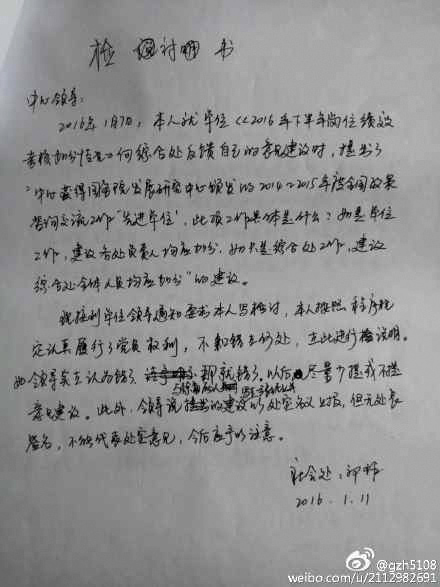 检讨书
中心领导:
2016年1月7日,本人就单位《2016年下半年岗位绩效
考核加分情况》向综合处反馈自己的意见建议时,提出了
"中心获得国务院发展研究中心颁发的2014-2015年度全国政策
咨询交流工作'先进单位',此项工作具体是什么?如是单位
工作,建议各处负责人均应加分,如只是综合处工作,建议
综合处全体人员均应加分"的建议。
我接到单位领导通知要求本人写检讨,本人按照程序规
定认真履行了党员权利,不知错在何处,在此进行检说明。
如领导实在认为错了 那就错了。以后尽量少提或不提
意见建议。此外,领导说提出的建议以处室名义上报,但无处长
签名,不能代表处室意见,今后应予以注意。
社会处:
2016.1.11
@gzh5108
weibo.com/u/2112982691